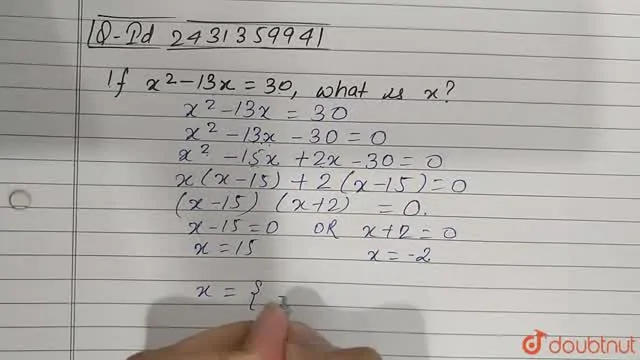 Q-Id 2431359941
If x² - 13x = 30, what is x?
x² - 13x = 30
x² - 13x - 30 = 0
x² - 15x + 2x - 30 = 0
x(x-15) + 2(x-15) = 0
(x-15) (x+2) = 0.
x-15 = 0 OR x+2 = 0
x = 15 x = -2
x = {
doubtnut